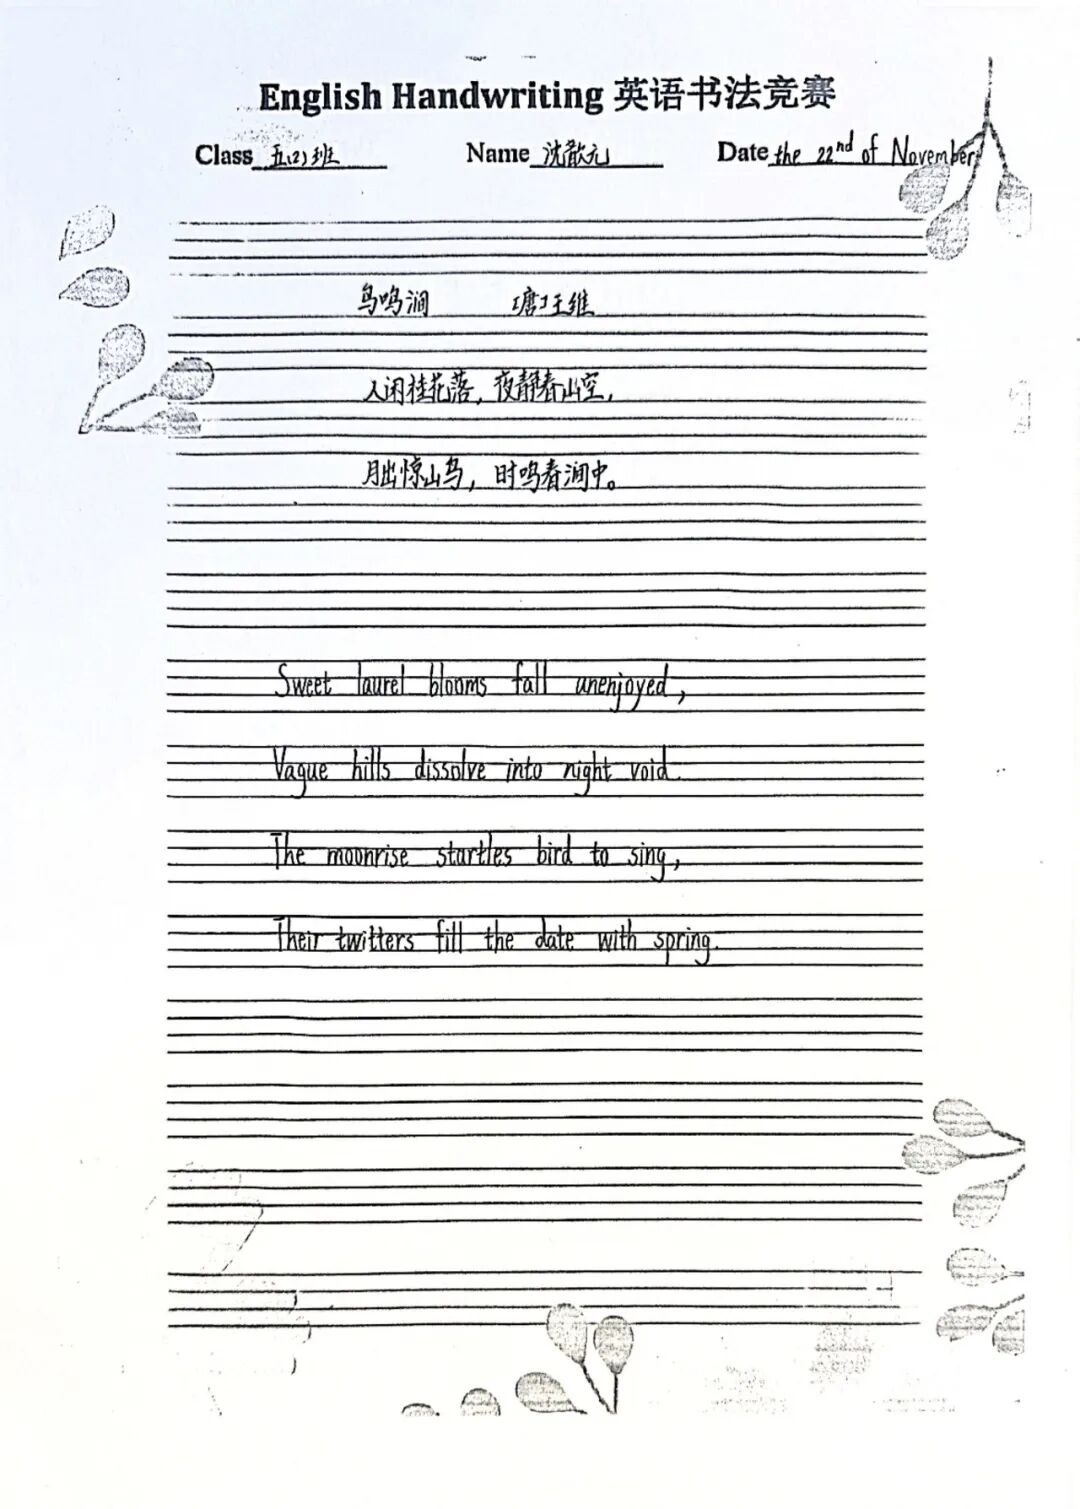 English Handwriting 英语书法竞赛
Class 五(2)班 Name 沈歆元 Date the 22nd of November
鸟鸣涧 [唐]王维
人闲桂花落，夜静春山空，
月出惊山鸟，时鸣春涧中。
Sweet laurel blooms fall unenjoyed,
Vague hills dissolve into night void.
The moonrise startles bird to sing,
Their twitters fill the date with spring.